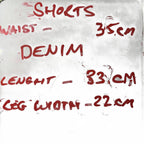 SHORTS
WAIST - 35.CM
DENIM
LENGHT - 83 CM
LEG WIDTH - 22 CM